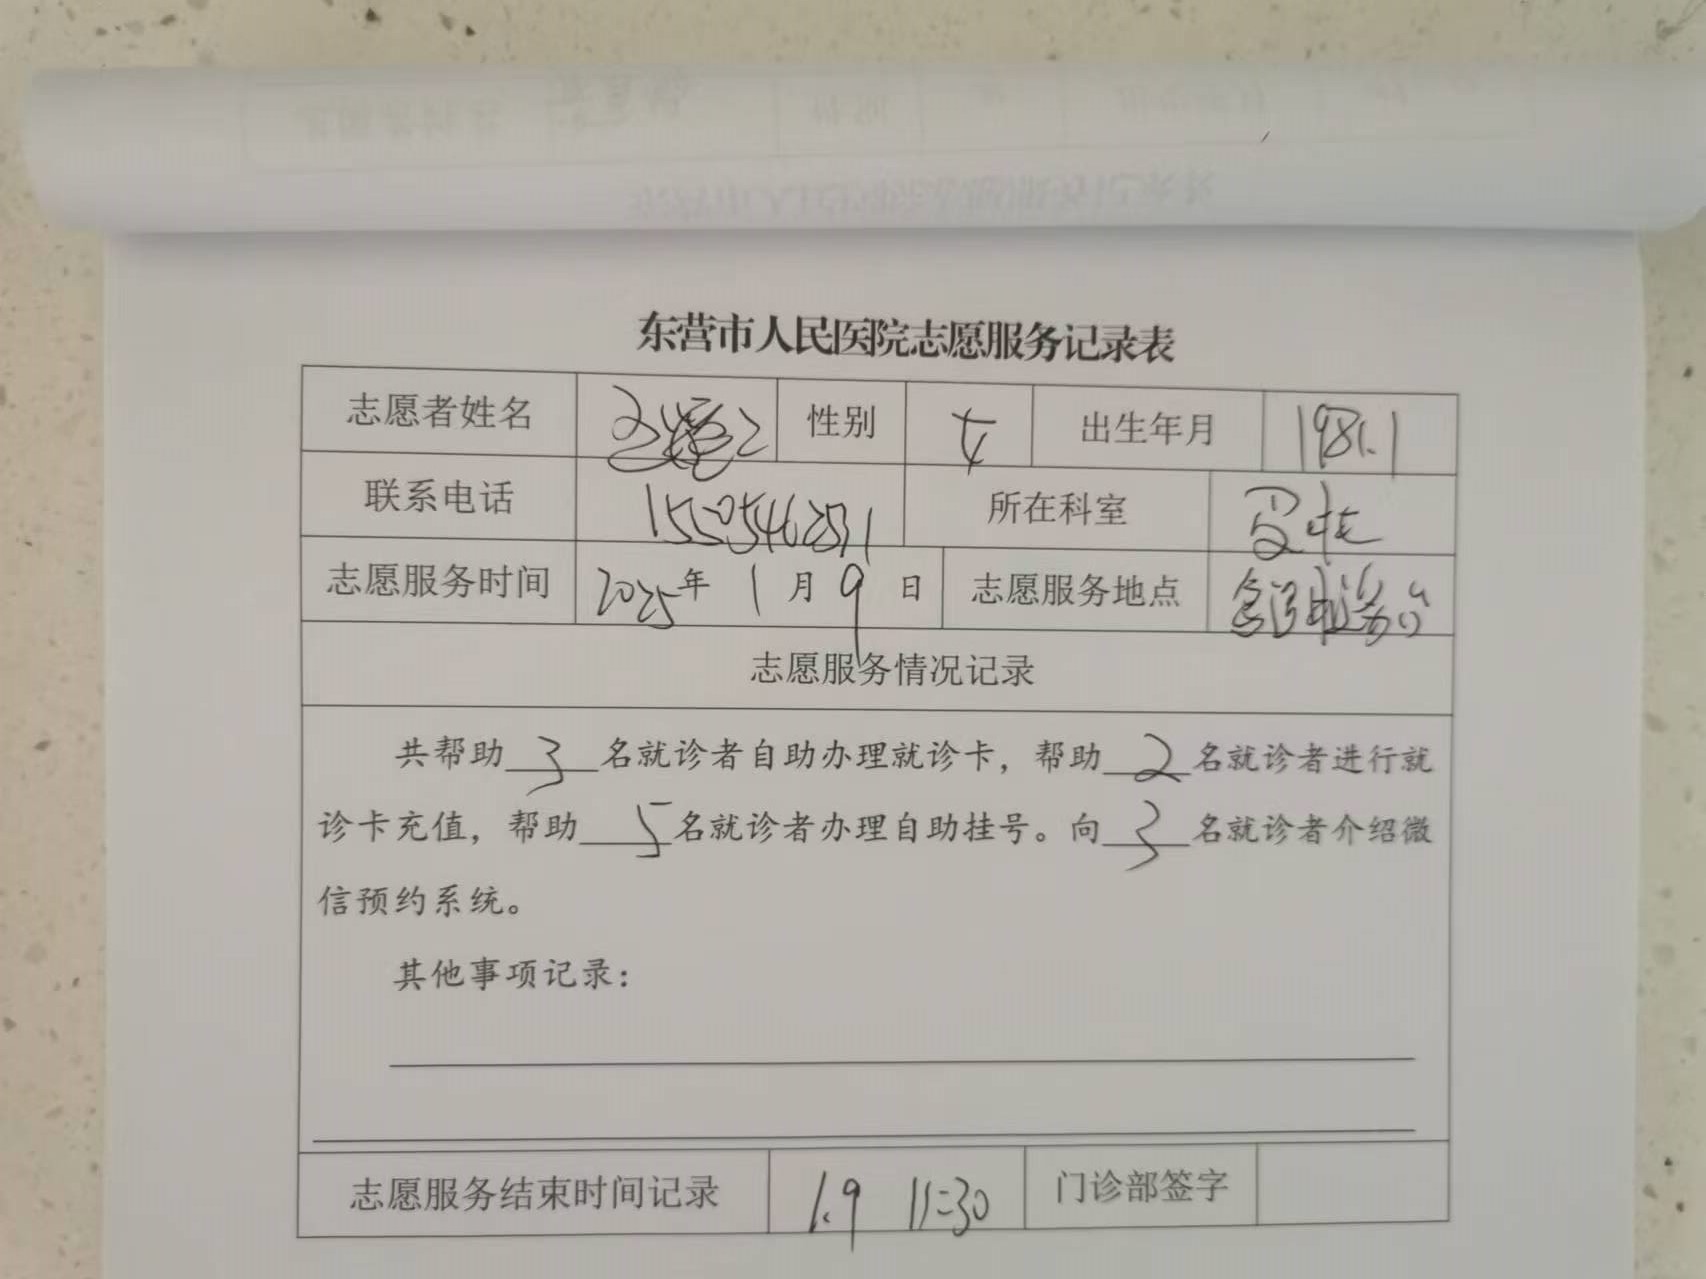 东营市人民医院志愿服务记录表
志愿者姓名 性别 女 出生年月 1981.1
联系电话 所在科室
志愿服务时间 2025年 1月9日 志愿服务地点
志愿服务情况记录
共帮助3名就诊者自助办理就诊卡，帮助2名就诊者进行就
诊卡充值，帮助5名就诊者办理自助挂号。向3名就诊者介绍微
信预约系统。
其他事项记录：
志愿服务结束时间记录 1.9 11:30 门诊部签字